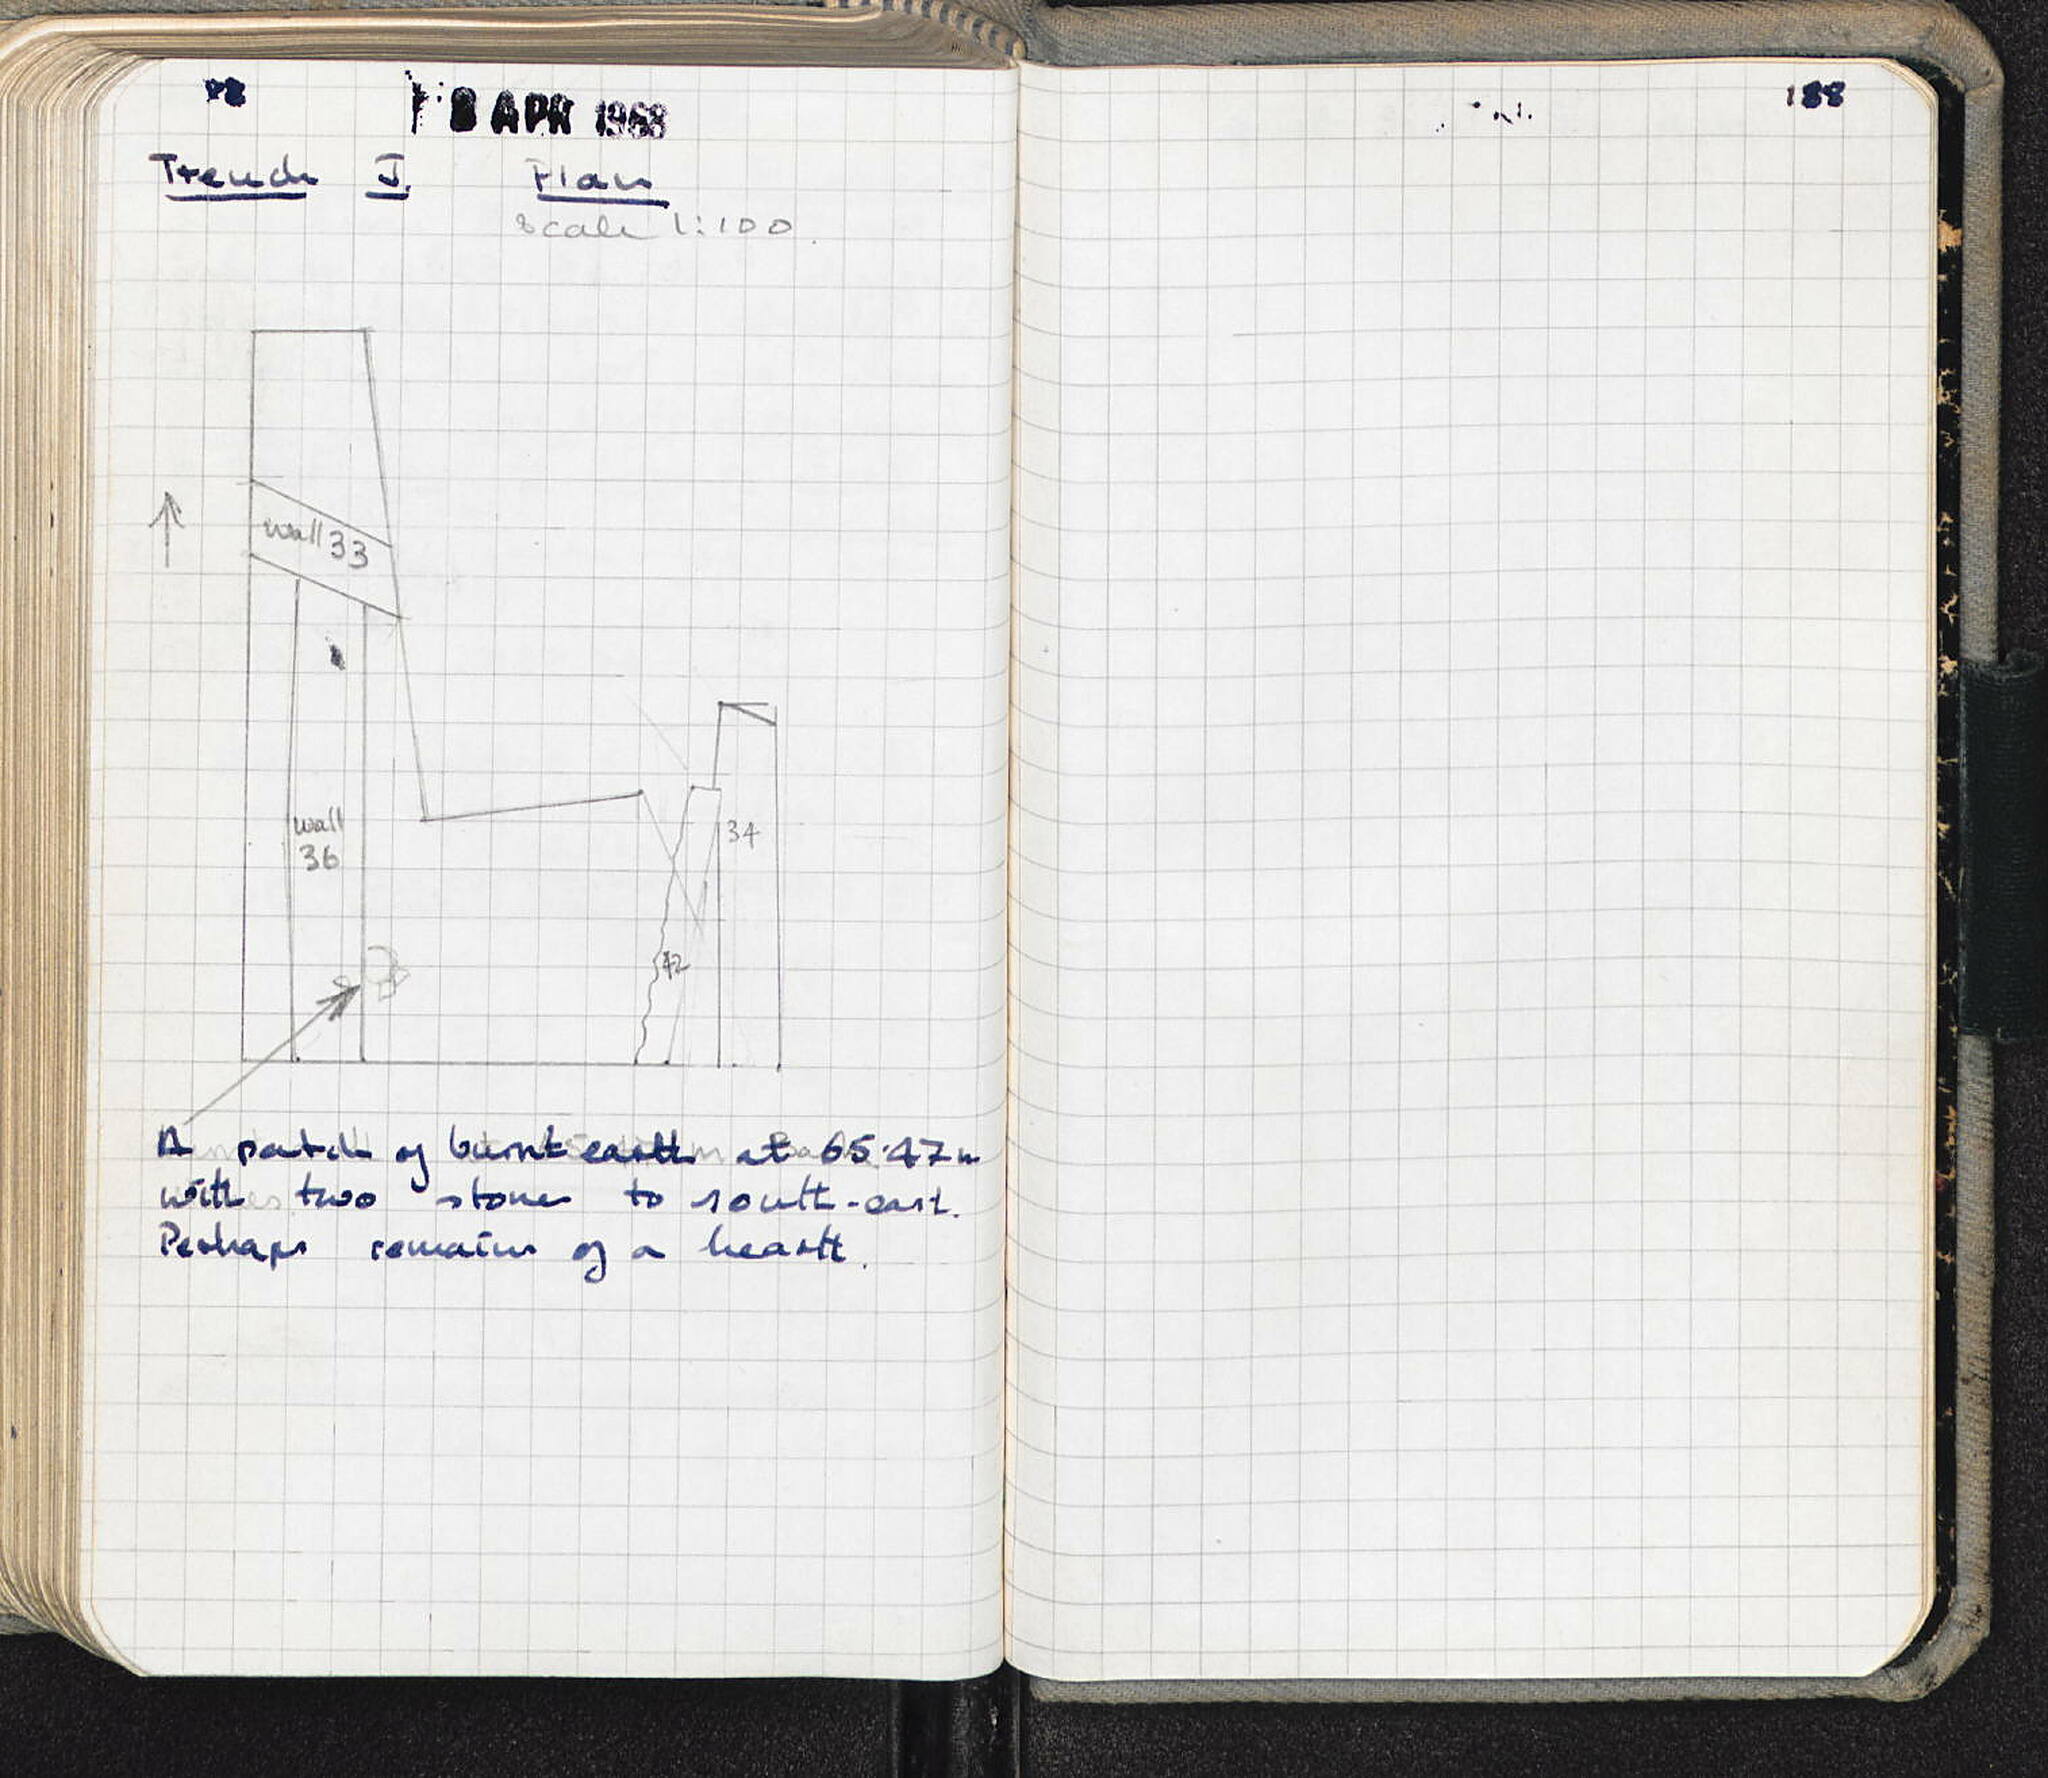 18 APR 1968
Trench J. Plan
Scale 1:100.
wall 33
34
wall
36
42
A patch of burnt earth at 65.47m
with two stones to south-east.
Perhaps remains of a hearth.
188